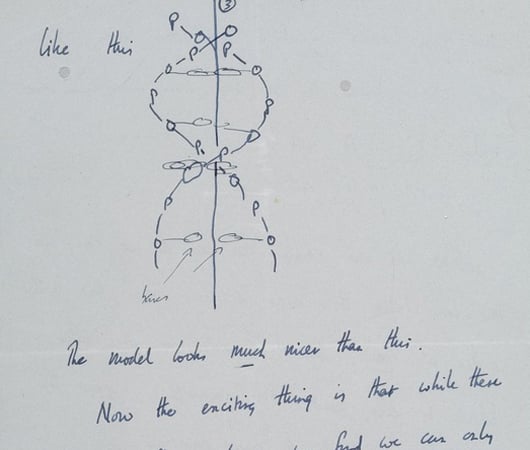 ③
P
P P
like this
P P
P P
P P
bases
The model looks much nicer than this.
Now the exciting thing is that while there
find we can only